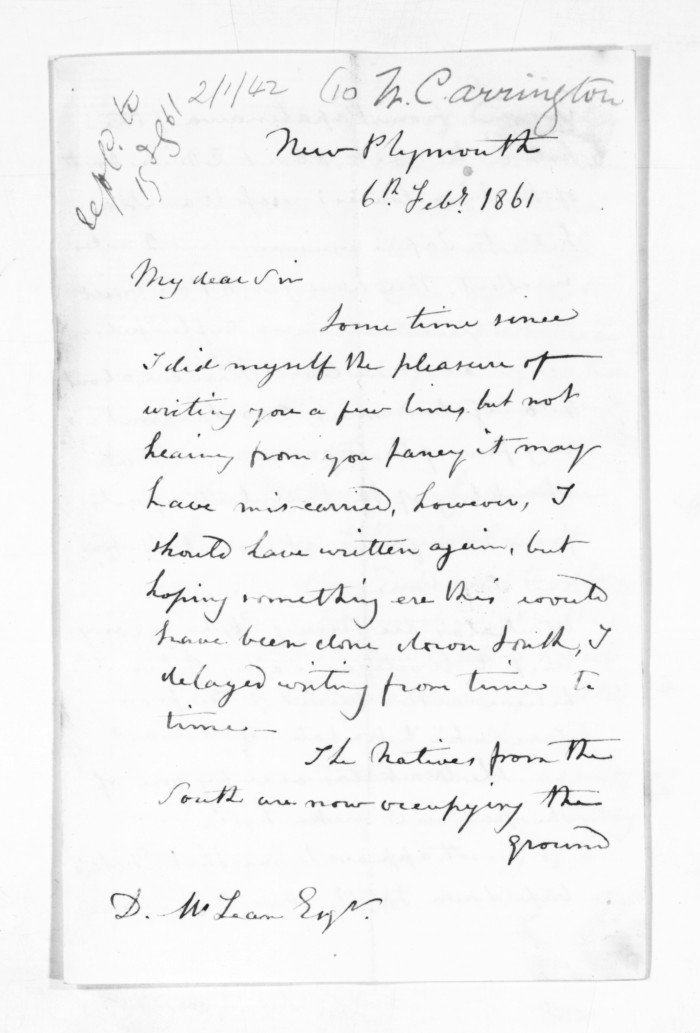 2/1/42 (10 W. Carrington
15 Feb 61
New Plymouth
6th. Feby. 1861
My dear Sir
Some time since
I did myself the pleasure of
writing you a few lines, but not
hearing from you fancy it may
have mis-carried, however, I
should have written again, but
hoping something ere this would
have been done down South, I
delayed writing from time to
time —
The Natives from the
South are now occupying the
ground
D. McLean Esqr.